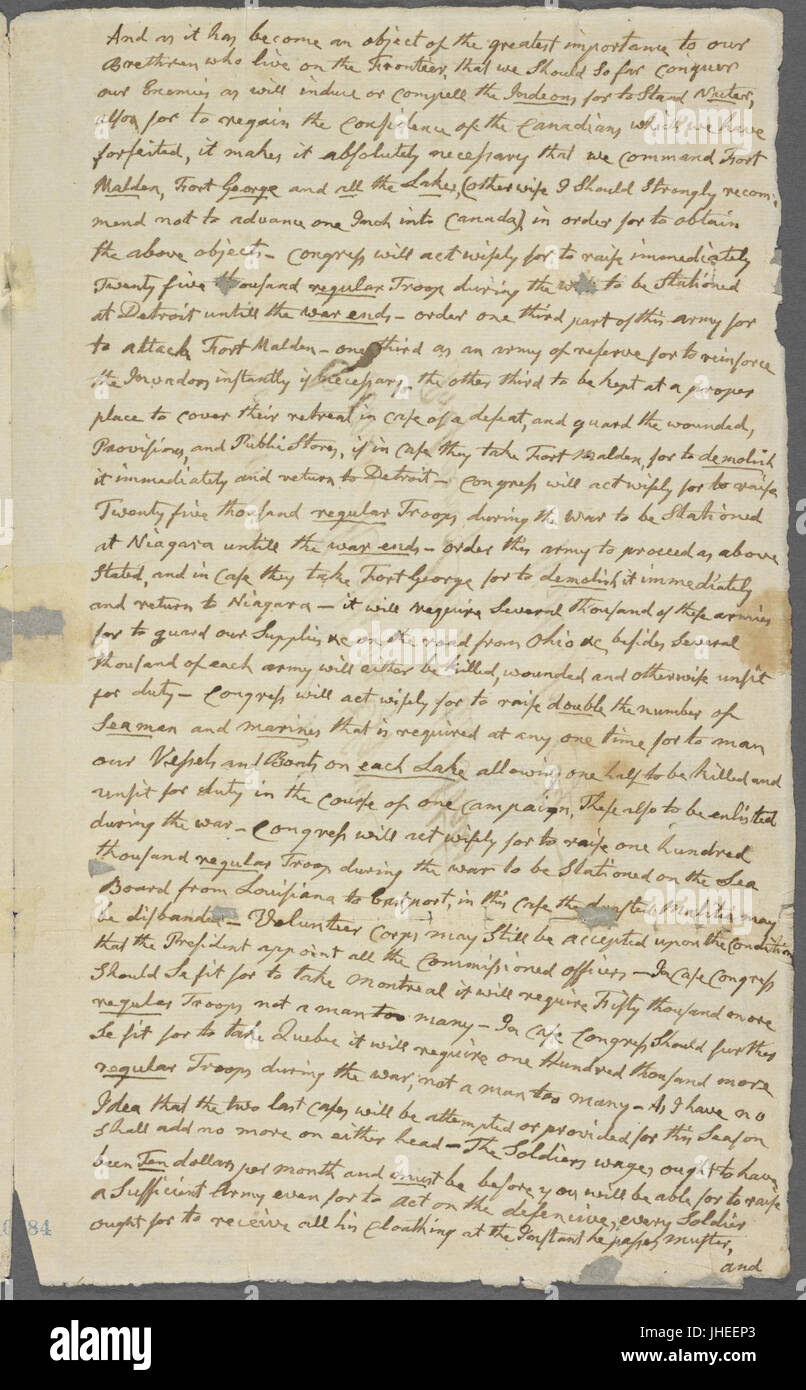 And as it has become an object of the greatest importance to our
Brethren who live on the Frontier, that we Should So far conquer
our Enemies as will induce or compell the Indeons for to Stand Nuter,
also for to regain the confidence of the Canadians which we have
forfeited, it makes it absolutely necessary that we command Fort
Malden, Fort George and all the Lakes, (otherwise I Should Strongly recom-
mend not to advance one Inch into Canada) in order for to obtain
the above objects – Congress will act wisely for to raise immediately
Twenty five thousand regular Troops during the war to be Stationed
at Detroit untill the war ends – order one third part of this army for
to attack Fort Malden – one third as an army of reserve for to reinforce
the Invadors instantly if necessary, the other third to be kept at a proper
place to cover their retreat in case of a defeat, and guard the wounded,
Provisions, and Public Stores, if in case they take Fort Malden, for to demolish
it immediately and return to Detroit – Congress will act wisely for to raise
Twenty five thousand regular Troops during the War to be Stationed
at Niagara untill the war ends – order this army to proceed as above
Stated, and in case they take Fort George for to demolish it immediately
and return to Niagara – it will require Several thousand of these armies
for to guard our Supplies &c on the road from Ohio &c, besides Several
thousand of each army will either be killed, wounded and otherwise unfit
for duty – Congress will act wisely for to raise double the number of
Seamen and marines that is required at any one time for to man
our Vessels and Boats on each Lake allowing one half to be killed and
unfit for duty in the course of one campaign, These also to be enlisted
during the war – Congress will act wisely for to raise one hundred
thousand regular Troops during the war to be Stationed on the Sea
Board from Louisiana to Eastport, in this case the Militia may
be disbanded – Volunteer Corps may Still be accepted upon the condition
that the President appoint all the commissioned officers – In case Congress
Should Se fit for to take Montreal it will require Fifty thousand more
regular Troops not a man too many – In case Congress Should further
Se fit for to take Quebec it will require one Hundred thousand more
regular Troops during the war, not a man too many – As I have no
Idea that the two last cases will be attempted or provided for this Season
Shall add no more on either head – The Soldiers wages ought to have
been Ten dollars per month and must be before you will be able for to raise
a Sufficient Army even for to act on the defencive, every Soldier
ought for to receive all his cloathing at the Instant he passes muster,
and
84
alamy
Image ID: JHEEP3
www.alamy.com